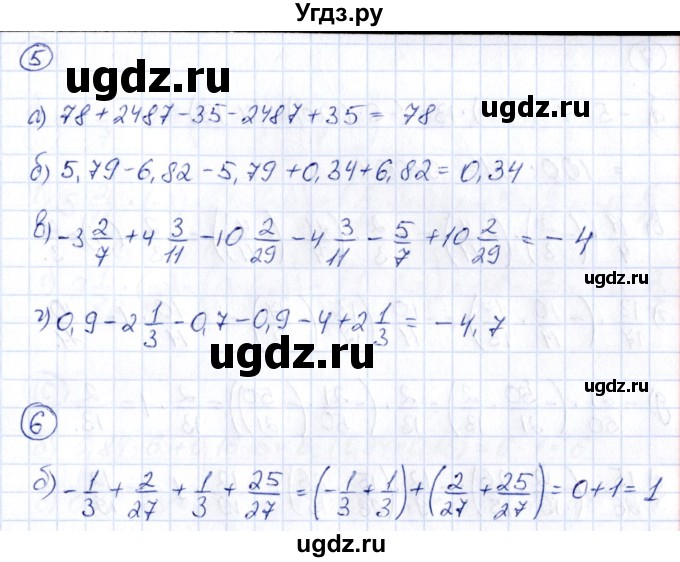 Угдз.ру
5
ugdz.ru
а) 78+2487-35-2487+35= 78
б) 5,79-6,82-5,79+0,34+6,82=0,34
в) -3 2/7 +4 3/11 -10 2/29 -4 3/11 - 5/7 +10 2/29 = -4
ugdz.ru
г) 0,9-2 1/3 -0,7-0,9-4+2 1/3 = -4,7
ugdz.ru
ugdz.ru
6
б) -1/3 + 2/27 + 1/3 + 25/27 = (-1/3 + 1/3) + (2/27 + 25/27) = 0+1=1
ugdz.ru